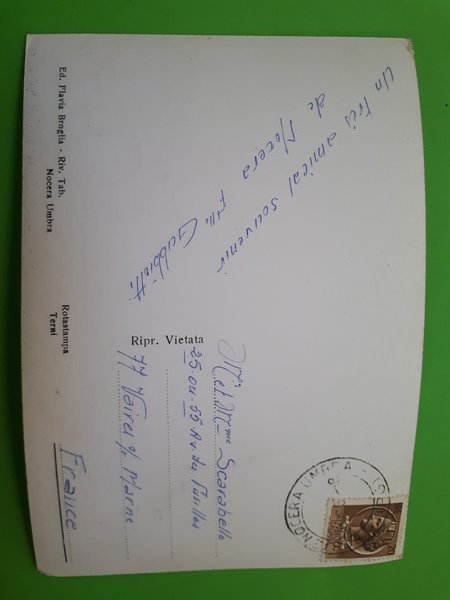 Un très amical souvenir
de Nocera
Ed. Flavia Broglia - Riv. Tab.
Nocera Umbra
Ripr. Vietata
Rotastampa
Terni
Mr et Mme Scarabello
Av. des
77 Vaires s/ Marne
France
NOCERA UMBRA